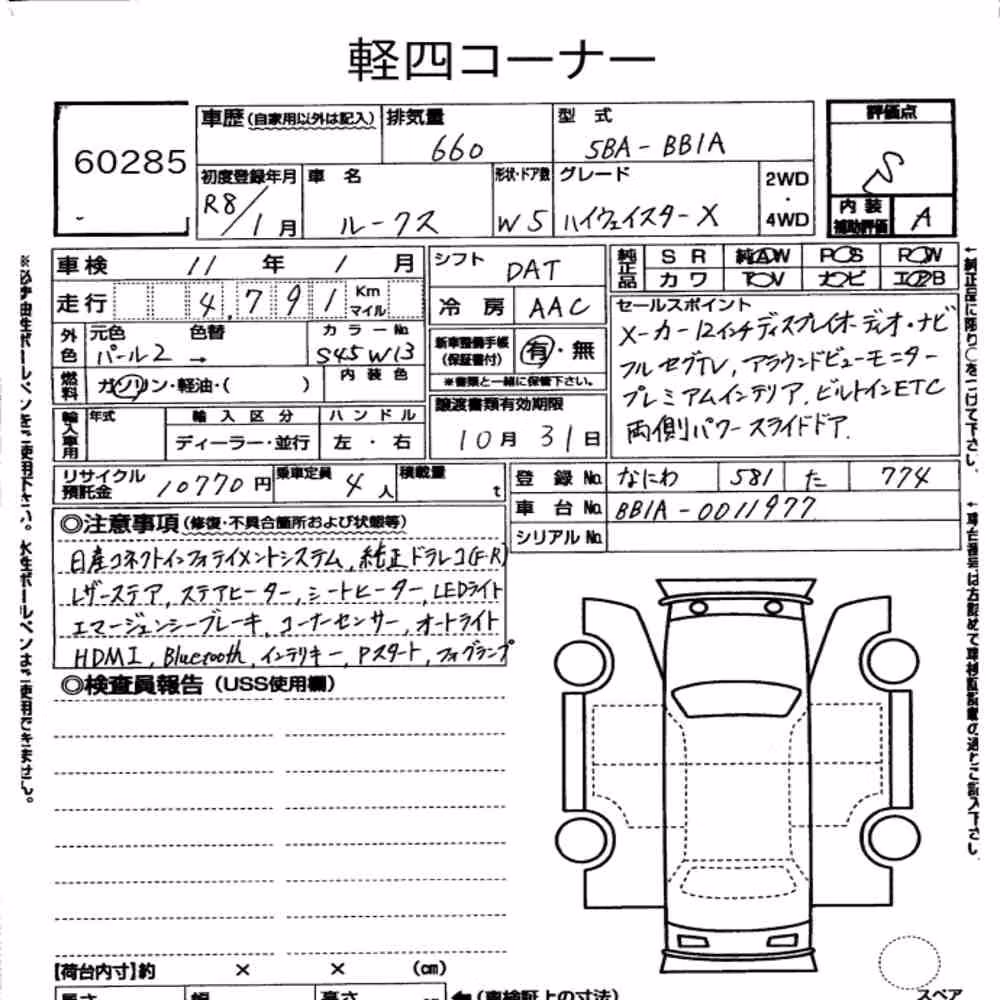 軽四コーナー
60285
車歴(自家用以外は記入)
排気量
660
型 式
5BA-BB1A
評価点
S
初度登録年月
R8/1月
車 名
ルークス
形状・ドア数
W5
グレード
ハイウェイスターX
2WD
・
4WD
内装
補助評価
A
車検 11年 1月
シフト
DAT
純正品
SR 純AW PS PW
カワ TV ナビ エアB
走行 4,791 Km
マイル
冷房 AAC
セールスポイント
メーカー12インチディスプレイオーディオ・ナビ
フルセグTV, アラウンドビューモニター
プレミアムインテリア, ビルトインETC
両側パワースライドドア.
外色
元色 色替
パール2 →
カラーNo
S45 W13
新車整備手帳
(保証書付)
有・無
※書類と一緒に保管下さい。
燃料
ガソリン・軽油・( )
内装色
譲渡書類有効期限
10月31日
輸入車用
年式
輸入区分
ディーラー・並行
ハンドル
左・右
リサイクル
預託金
10770円
乗車定員
4人
積載量
t
登録No なにわ 581 た 774
車台No BB1A-0011977
シリアルNo
◎注意事項(修復・不具合箇所および状態等)
日産コネクトインフォテイメントシステム, 純正ドラレコ(F・R)
レザーステア, ステアヒーター, シートヒーター, LEDライト
エマージェンシーブレーキ, コーナーセンサー, オートライト
HDMI, Bluetooth, インテリキー, Pスタート, フォグランプ
◎検査員報告(USS使用欄)
【荷台内寸】約 × × (cm)
長さ 幅 高さ
(車検証上の寸法)
スペア
※必ず油性ボールペンをご使用下さい。水性ボールペンはご使用できません。
←純正品に限り○をつけて下さい。
←車台番号は左詰めで車検証記載の通りご記入下さい